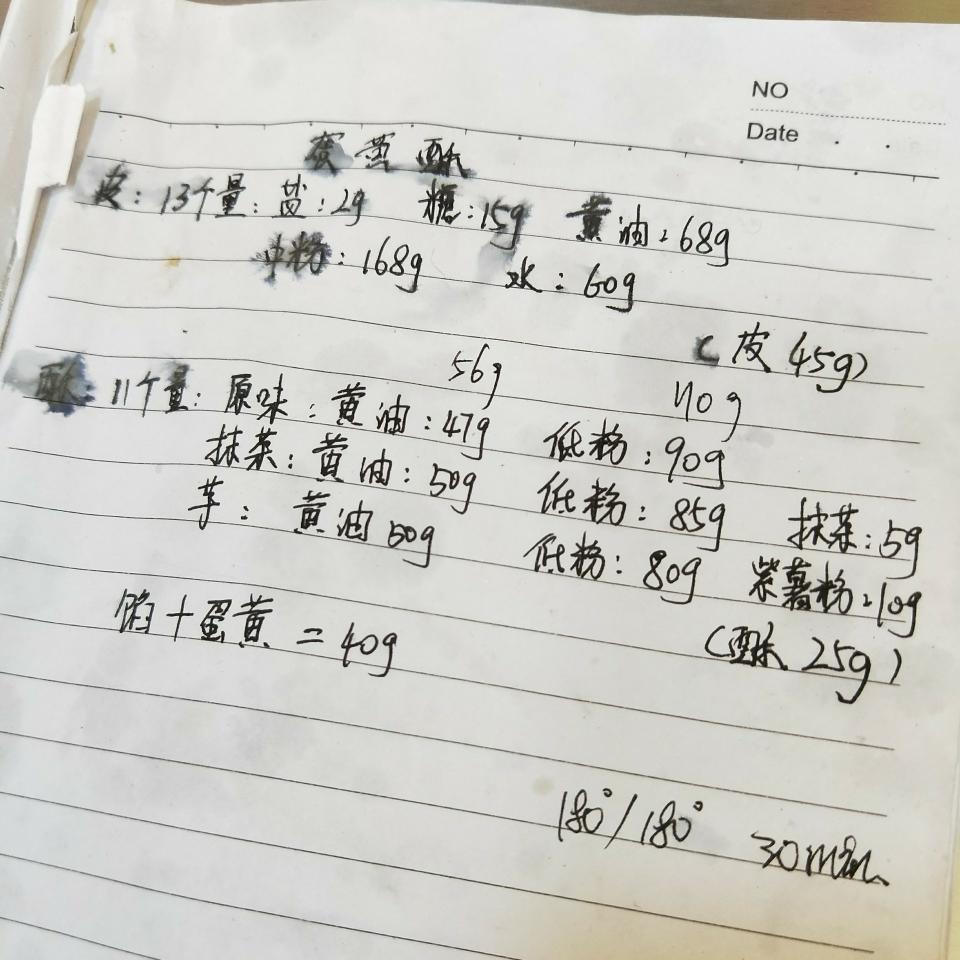 NO
Date
蛋黄酥
皮：13个量：盐：2g 糖：15g 黄油：68g
中粉：168g 水：60g
（皮 45g）
56g 110g
酥：11个量：原味：黄油：47g 低粉：90g
抹茶：黄油：50g 低粉：85g 抹茶：5g
芋：黄油50g 低粉：80g 紫薯粉：10g
馅+蛋黄=40g （酥 25g）
180°/180° 30min